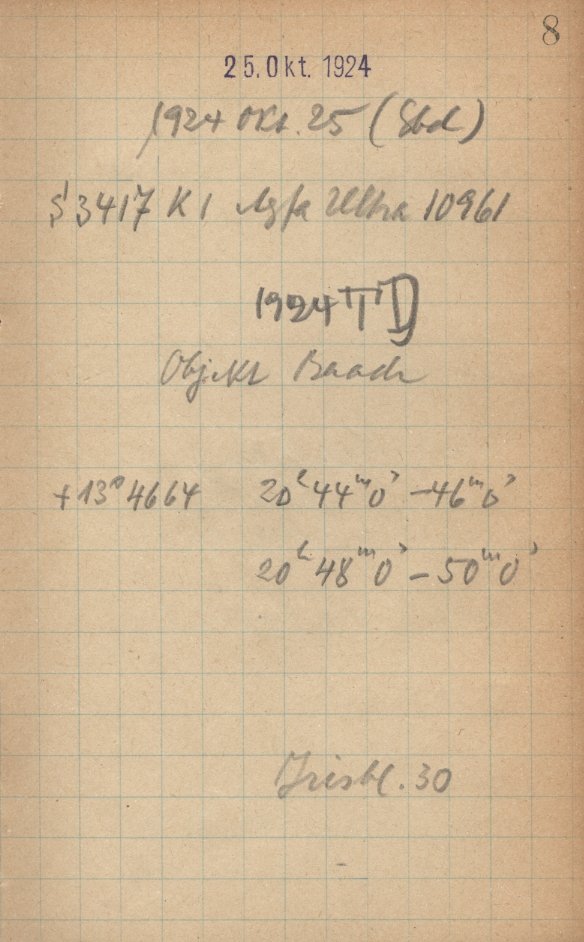 8
25. Okt. 1924
1924 Okt. 25 (Sbd)
S 3417 K1 Agfa Ultra 10961
1924 TD
Objekt Baade
+13° 4664 20ʰ44ᵐ0ˢ – 46ᵐ0ˢ
20ʰ48ᵐ0ˢ – 50ᵐ0ˢ
Irisbl. 30